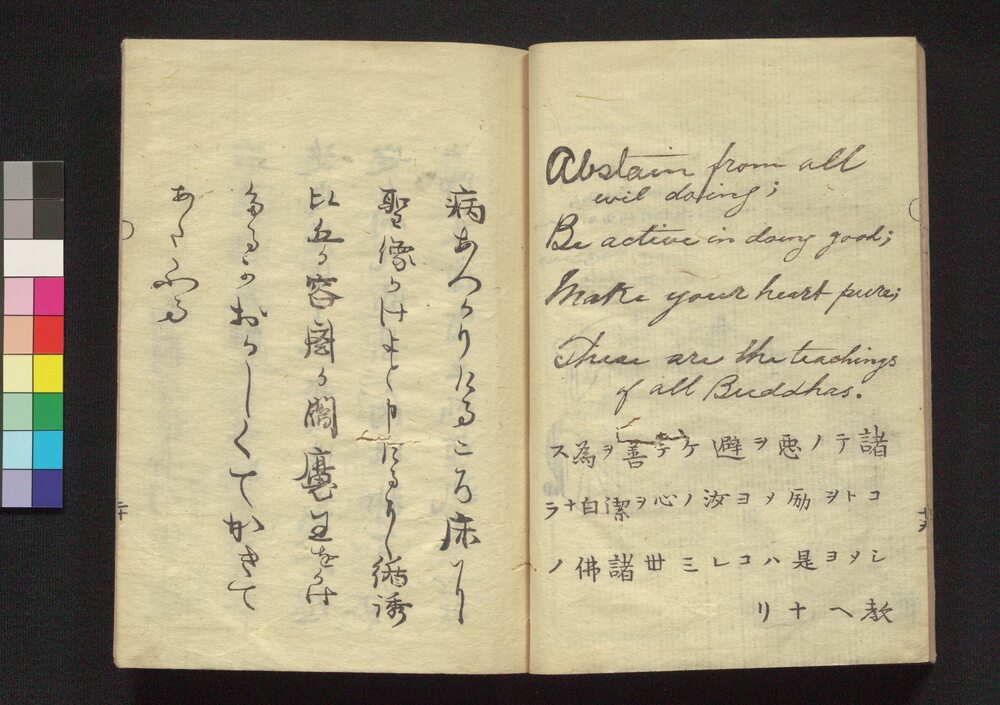 Abstain from all
evil doing;
Be active in doing good;
Make your heart pure;
These are the teachings
of all Buddhas.
諸テノ悪ヲ避ケテ善ヲ為ス
コトヲ励メヨ汝ノ心ヲ潔白ナラ
シメヨ是ハコレ三世諸佛ノ
教ヘナリ
病あつかりけるころ床
聖像かけよと申ける
比丘か容齋か閻魔王をかけ
たるかおかしくてかきて
あたふる